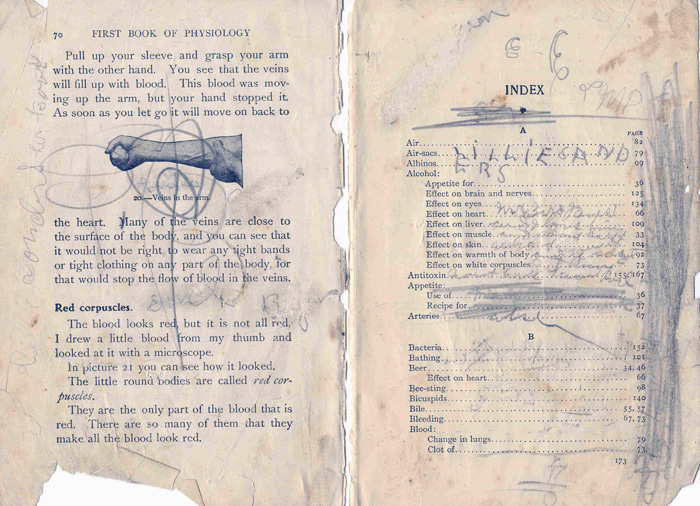 70 FIRST BOOK OF PHYSIOLOGY
Pull up your sleeve and grasp your arm
with the other hand. You see that the veins
will fill up with blood. This blood was mov-
ing up the arm, but your hand stopped it.
As soon as you let go it will move on back to
20.—Veins in the arm.
the heart. Many of the veins are close to
the surface of the body, and you can see that
it would not be right to wear any tight bands
or tight clothing on any part of the body, for
that would stop the flow of blood in the veins.
Red corpuscles.
The blood looks red, but it is not all red.
I drew a little blood from my thumb and
looked at it with a microscope.
In picture 21 you can see how it looked.
The little round bodies are called red cor-
puscles.
They are the only part of the blood that is
red. There are so many of them that they
make all the blood look red.
INDEX
A
PAGE
Air 82
Air-sacs 79
Albinos 99
LILLIESAND
ERS
Alcohol:
Appetite for 36
Effect on brain and nerves 125
Effect on eyes 134
Effect on heart 66
Effect on liver 109
Effect on muscle 33
Effect on skin 104
Effect on warmth of body 92
Effect on white corpuscles 73
Antitoxin 155, 167
Appetite:
Use of 36
Recipe for 36
Arteries 67
B
Bacteria 152
Bathing 101
Beer 34, 46
Effect on heart 66
Bee-sting 98
Bicuspids 140
Bile 55, 57
Bleeding 67, 73
Blood:
Change in lungs 79
Clot of 73
173